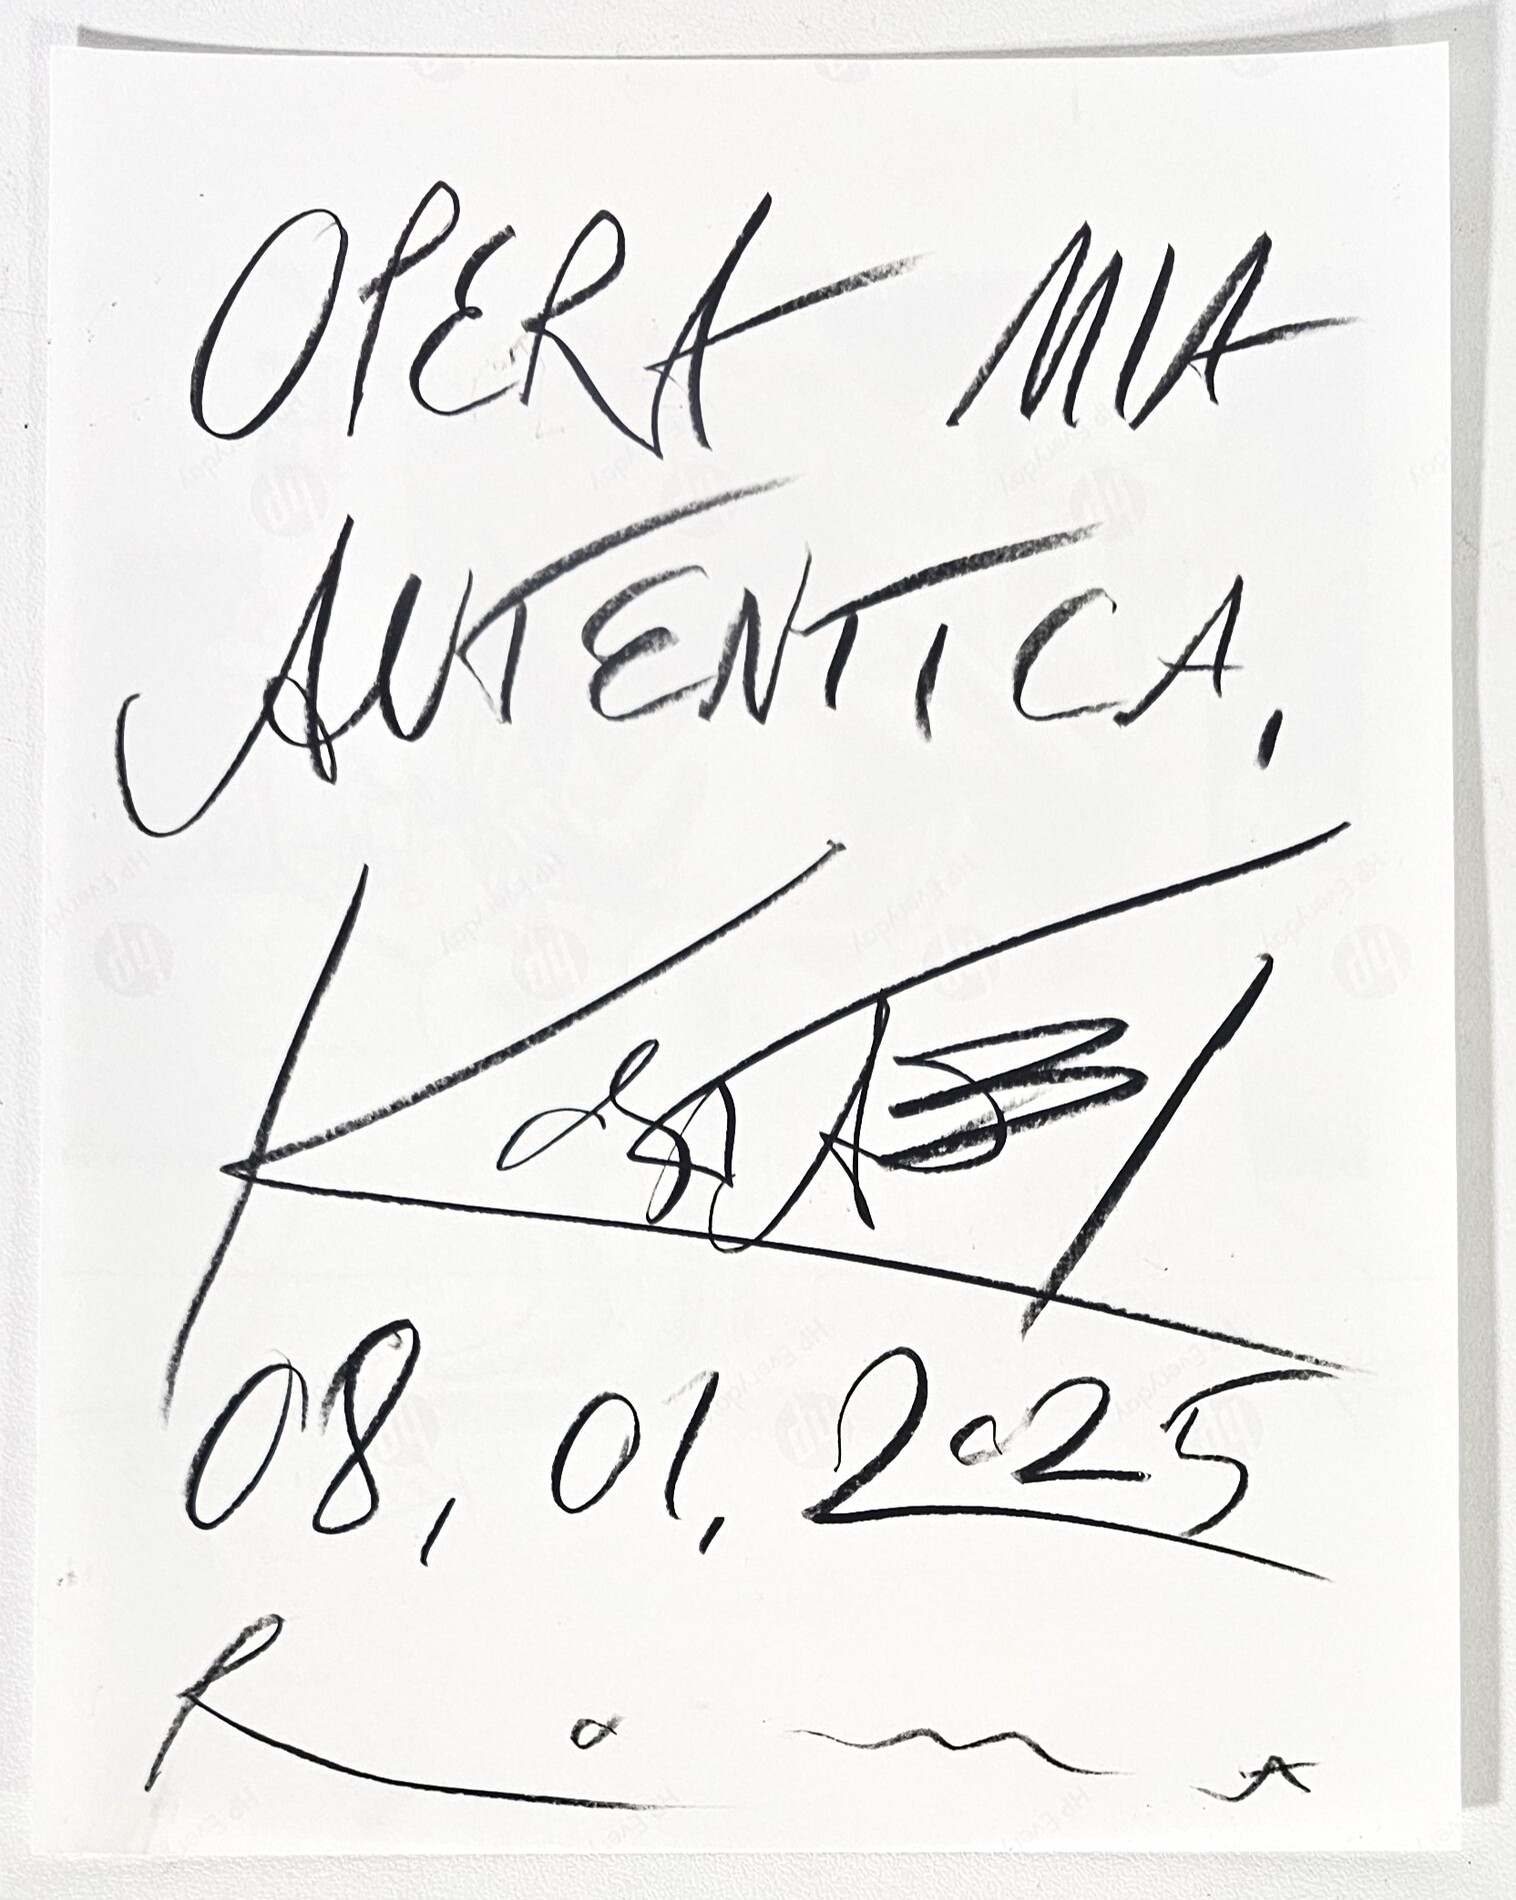 OPERA MIA
AUTENTICA.
KOSTABI
08. 01. 2025
Roma